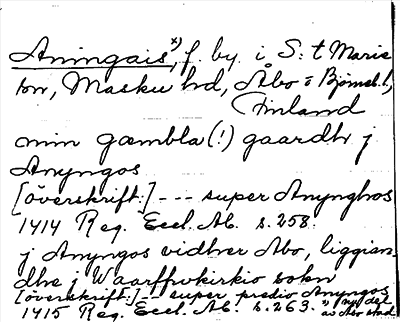 Aningais x), f. by. i S:t Marie
kn, Masku hd, Åbo o Björneb. l,
Finland
min gæmbla (!) gaardh j
Anyngos
[överskrift:] --- super Anynghos
1414 Reg. Eccl. Ab. s. 258.
j Anyngos vidher Abo, liggian-
dhe j Waarffrwkirkio sokn
[överskrift:] -- super predio Anyngos
1415 Reg. Eccl. Ab. s. 263. x) ny del
av Åbo stad